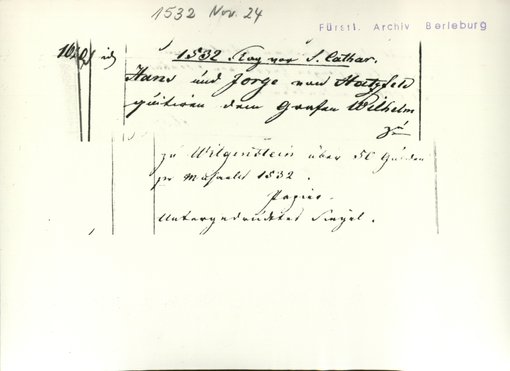 1532 Nov. 24
Fürstl. Archiv Berleburg
id 1532 Tag vor S. Cathar.
Hans und Jorge von Hatzfeld
quitiren dem Grafen Wilhelm
zu
zu Witgenstein über 50 Gulden
pr 1532.
Papier.
Untergedrucktes Siegel.